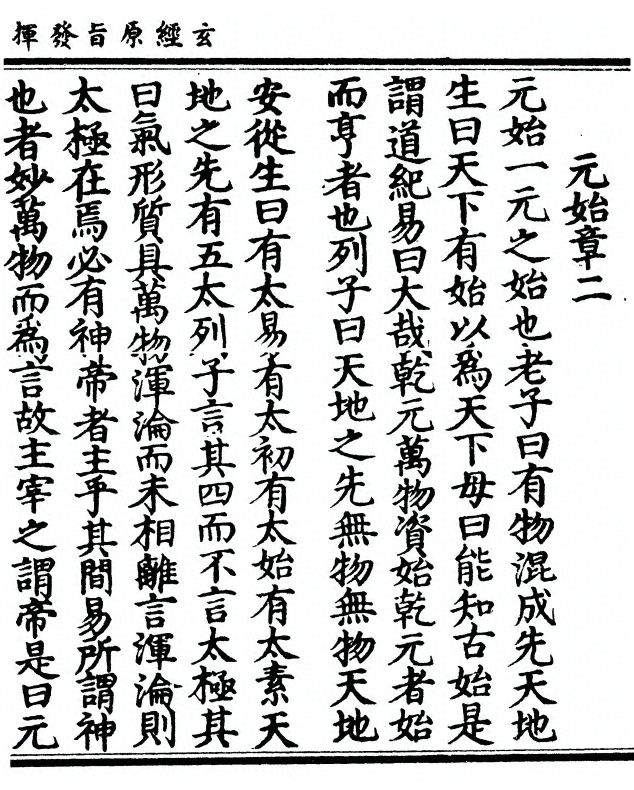 玄經原旨發揮
元始章二
元始一元之始也老子曰有物混成先天地
生曰天下有始以爲天下母曰能知古始是
謂道紀易曰大哉乾元萬物資始乾元者始
而亨者也列子曰天地之先無物無物天地
安從生曰有太易有太初有太始有太素天
地之先有五太列子言其四而不言太極其
曰氣形質具萬物渾淪而未相離言渾淪則
太極在焉必有神帝者主乎其間易所謂神
也者妙萬物而爲言故主宰之謂帝是曰元